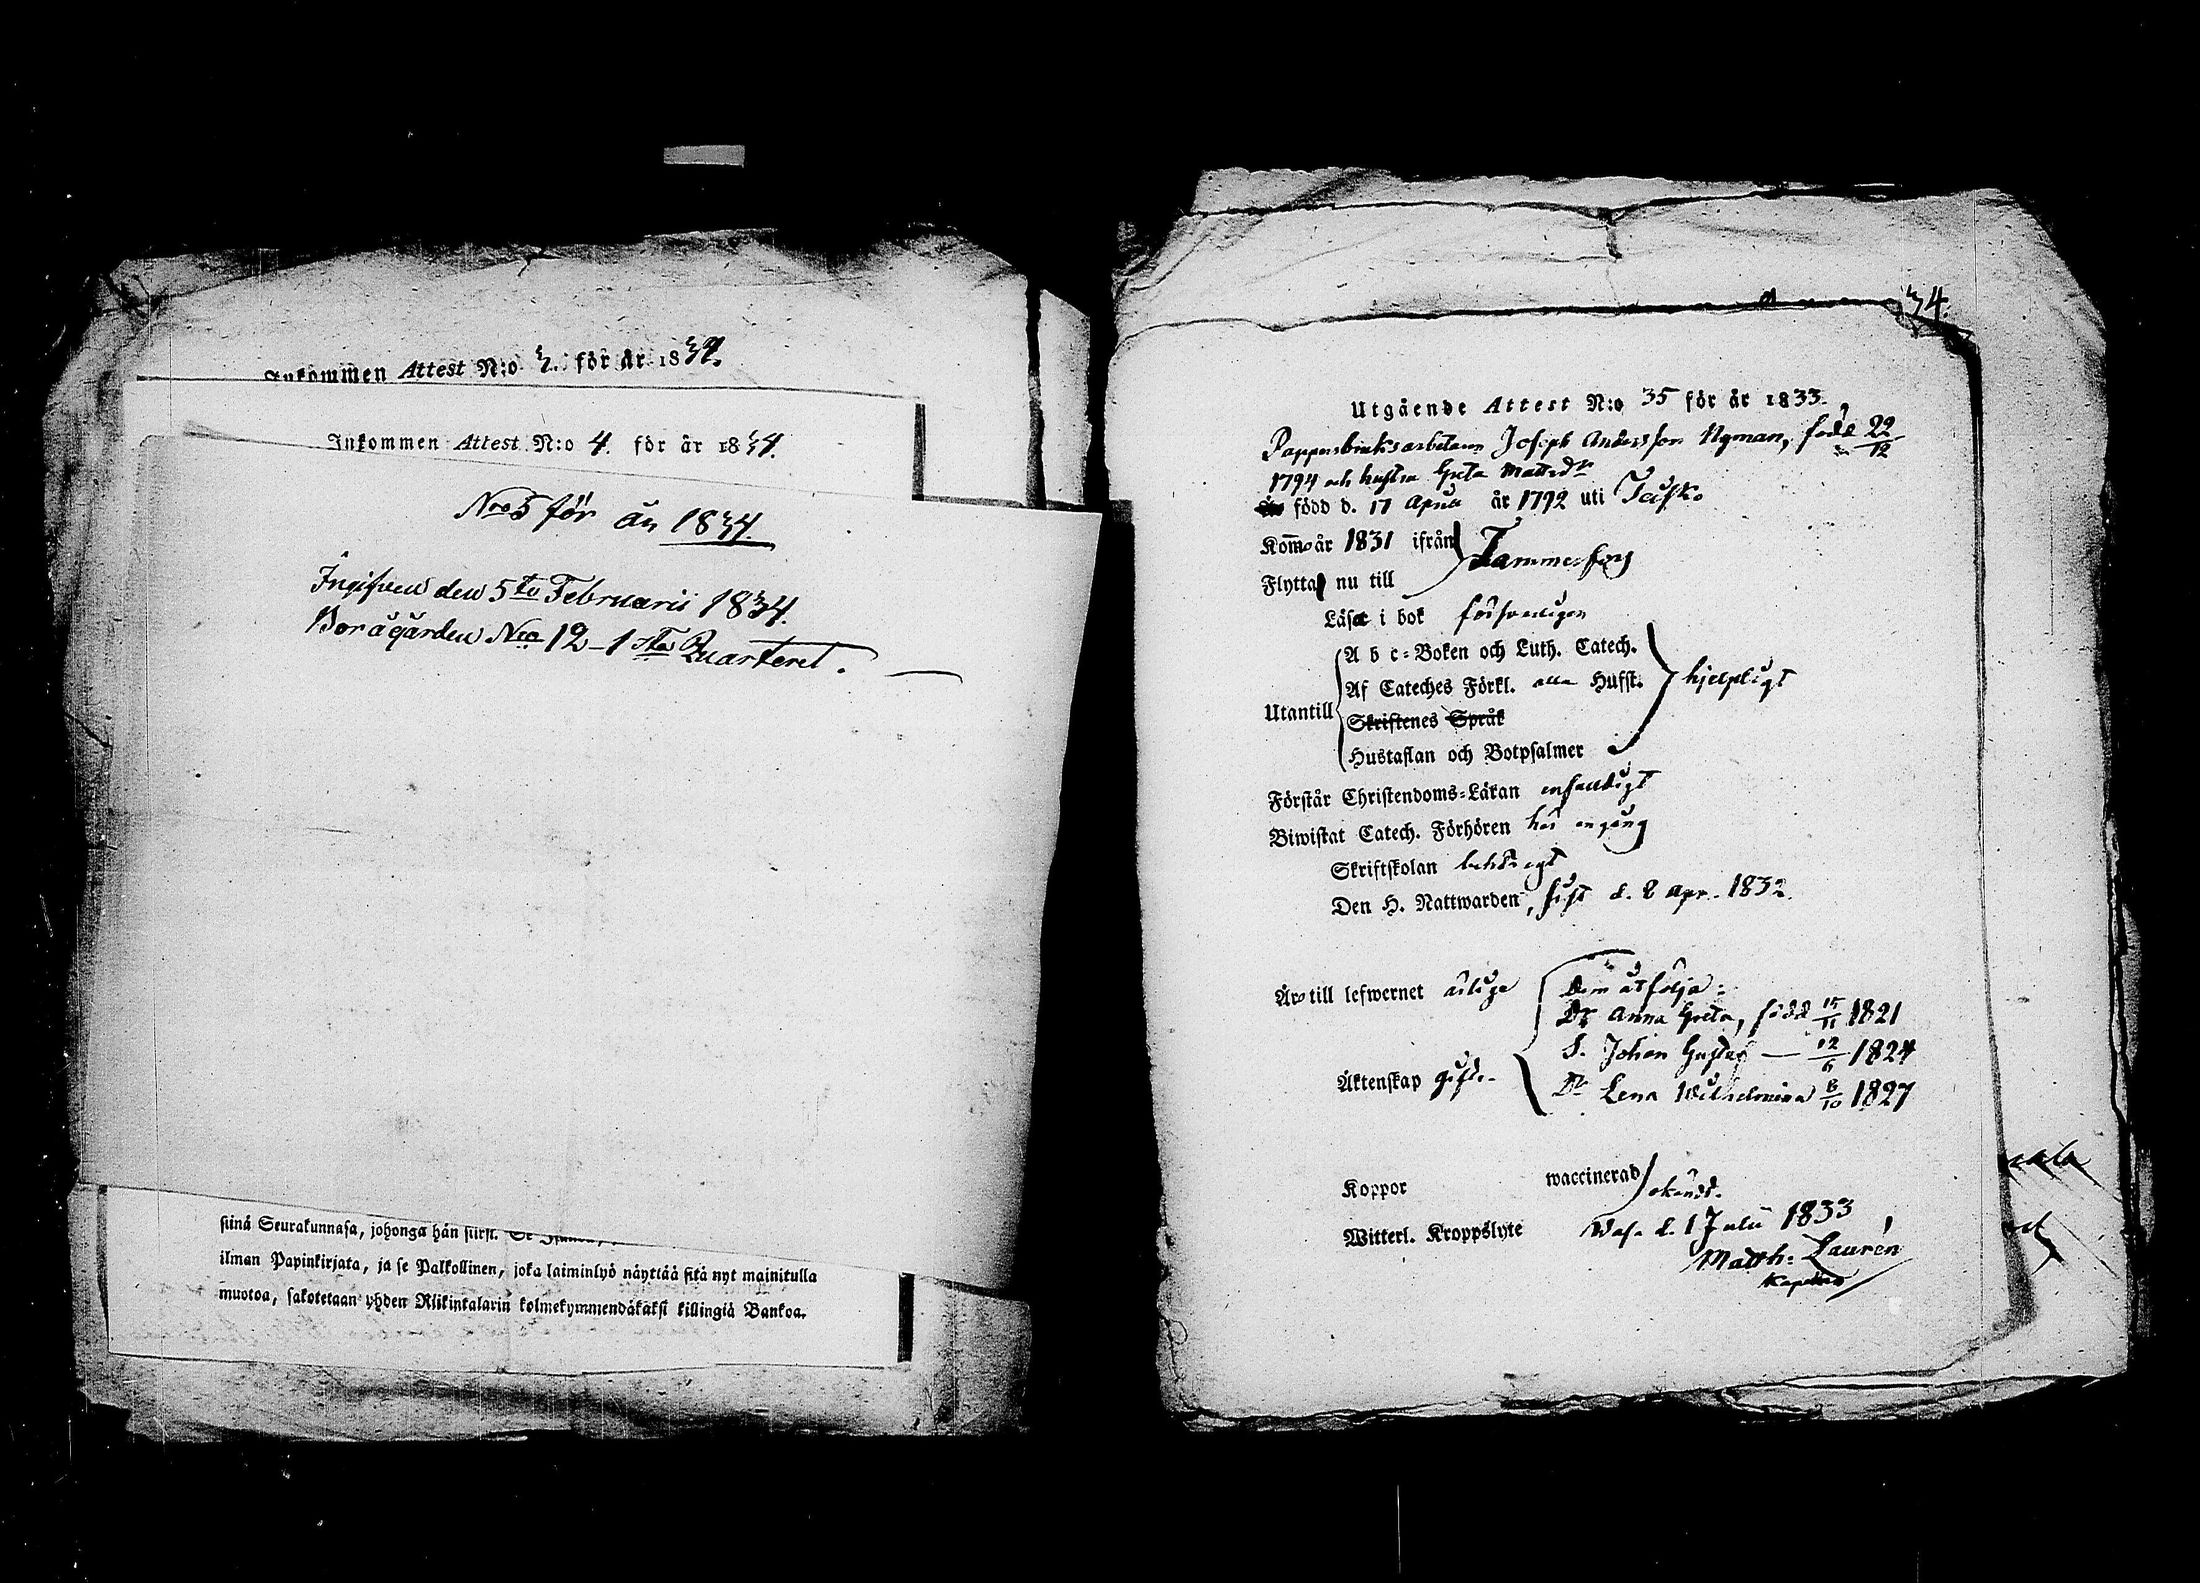 Inkommen Attest N:o 3. för år 1834.
Inkommen Attest N:o 4. för år 1834.
Nro 5 för år 1834.
Ingifven den 5te Februarii 1834.
Borågården Nro 12 – 1sta Quarteret.
siinä Seurakunnasa, johonga hän siirsi.
ilman Papinkirjata, ja se Palkollinen, joka laiminlyö näyttää sitä nyt mainitulla
muotoa, sakotetaan yhden Riikintalarin kolmekymmendäkaksi killingiä Bankoa.
34.
Utgående Attest N:o 35 för år 1833.
Pappersbruksarbetaren Joseph Andersson Nyman, född 22/12
1794 och hustru Greta Mattsdr
född d. 17 April år 1792 uti
Kommo år 1831 ifrån Tammerfors
Flytta nu till
Läsa i bok försvarligen
A b c-Boken och Luth. Catech.
Af Cateches Förkl. alla Hufst. hjelpligt
Utantill
Skriftenes Språk
Hustaflan och Botpsalmer
Förstår Christendoms-Läran enfaldigt
Biwistat Catech. Förhören här en gång
Skriftskolan behörigt
Den H. Nattwarden, sist d. 8 Apr. 1832.
Äro till lefwernet ärlige
Dem åtfölja:
Dr Anna Greta, född 15/11 1821
S. Johan Gustaf — 12/6 1824
Äktenskap gifte.
Dr Lena Wilhelmina 8/10 1827
Koppor waccinerad okändt.
Witterl. Kroppslyte
d. 1 Julii 1833
Matth: Laurén